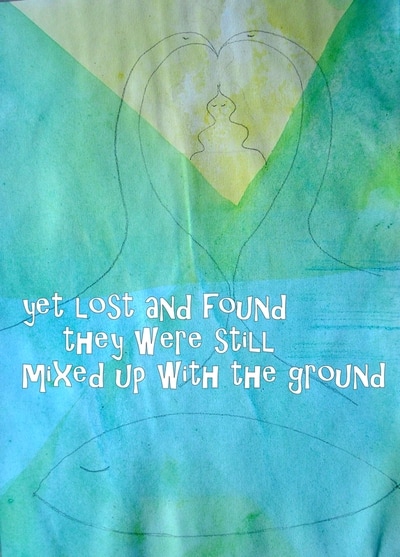 yet Lost and Found
they were still
mixed up with the ground